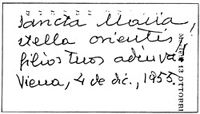 sancta Maria,
stella orientis,
filios tuos adiuva.
Viena, 4 de dic., 1955